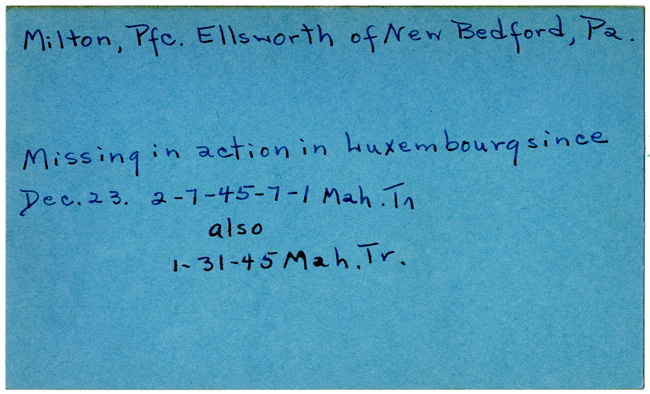 Milton, Pfc. Ellsworth of New Bedford, Pa.
Missing in action in Luxembourg since
Dec. 23. 2-7-45-7-1 Mah. Tr
also
1-31-45 Mah. Tr.